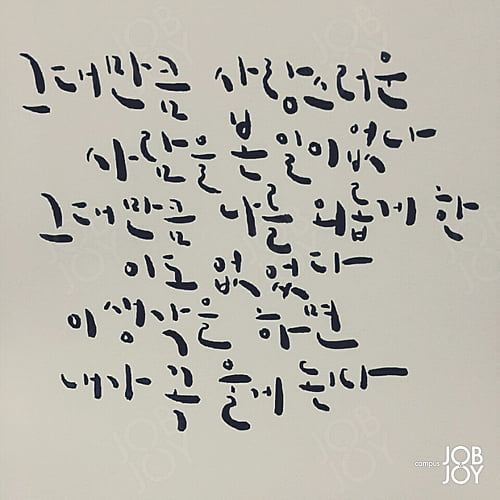 그대만큼 사랑스러운
사람을 본 일이 없다
그대만큼 나를 외롭게 한
이도 없었다
이 생각을 하면
내가 꼭 울게 된다
campus JOB
JOY